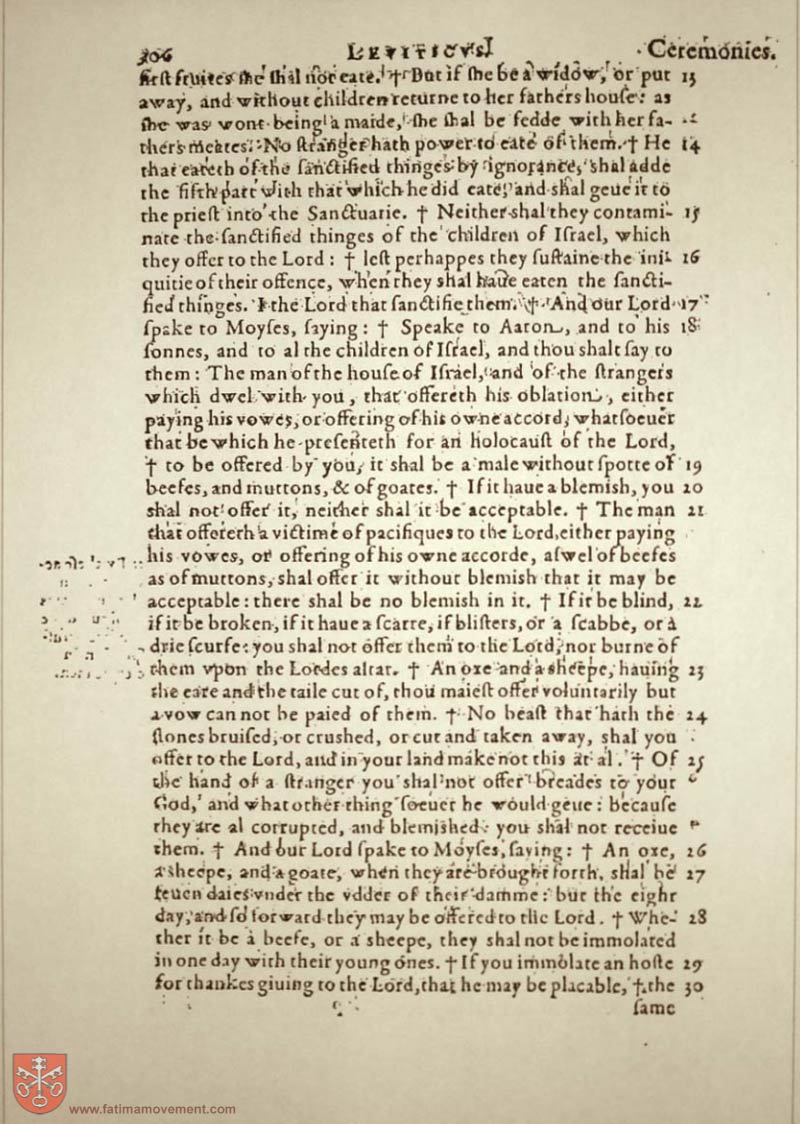 306 LEVITICVS Ceremonies.
first fruites she shal not eate. † But if she be a widow, or put 13
away, and without children returne to her fathers house: as
she was wont being a maide, she shal be fedde with her fa-
thers meates. No stranger hath power to eate of them. † He 14
that eateth of the sanctified thinges by ignorance, shal adde
the fifth part with that which he did eate, and shal geue it to
the priest into the Sanctuarie. † Neither shal they contami- 15
nate the sanctified thinges of the children of Israel, which
they offer to the Lord: † lest perhappes they sustaine the ini- 16
quitie of their offence, when they shal haue eaten the sancti-
fied thinges. I the Lord that sanctifie them. † And our Lord 17
spake to Moyses, saying: † Speake to Aaron, and to his 18
sonnes, and to al the children of Israel, and thou shalt say to
them: The man of the house of Israel, and of the strangers
which dwel with you, that offereth his oblation, either
paying his vowes, or offering of his owne accord, whatsoeuer
that be which he presenteth for an holocaust of the Lord,
† to be offered by you, it shal be a male without spotte of 19
beefes, and muttons, & of goates. † If it haue a blemish, you 20
shal not offer it, neither shal it be acceptable. † The man 21
that offereth a victime of pacifiques to the Lord, either paying
his vowes, or offering of his owne accorde, aswel of beefes
as of muttons, shal offer it without blemish that it may be
acceptable: there shal be no blemish in it. † If it be blind, 22
if it be broken, if it haue a scarre, if blisters, or a scabbe, or a
drie scurfe: you shal not offer them to the Lord, nor burne of
them vpon the Lordes altar. † An oxe and a sheepe, hauing 23
the eare and the taile cut of, thou maiest offer voluntarily but
a vow can not be paied of them. † No beast that hath the 24
stones bruised, or crushed, or cut and taken away, shal you
offer to the Lord, and in your land make not this at al. † Of 25
the hand of a stranger you shal not offer breades to your
God, and what other thing soeuer he would geue: because
they are al corrupted, and blemished: you shal not receiue
them. † And our Lord spake to Moyses, saying: † An oxe, 26
a sheepe, and a goate, when they are brought forth, shal be 27
seuen daies vnder the vdder of their damme: but the eight
day, and so forward they may be offered to the Lord. † Whe- 28
ther it be a beefe, or a sheepe, they shal not be immolated
in one day with their young ones. † If you immolate an hoste 29
for thankes giuing to the Lord, that he may be placable, † the 30
same
www.fatimamovement.com